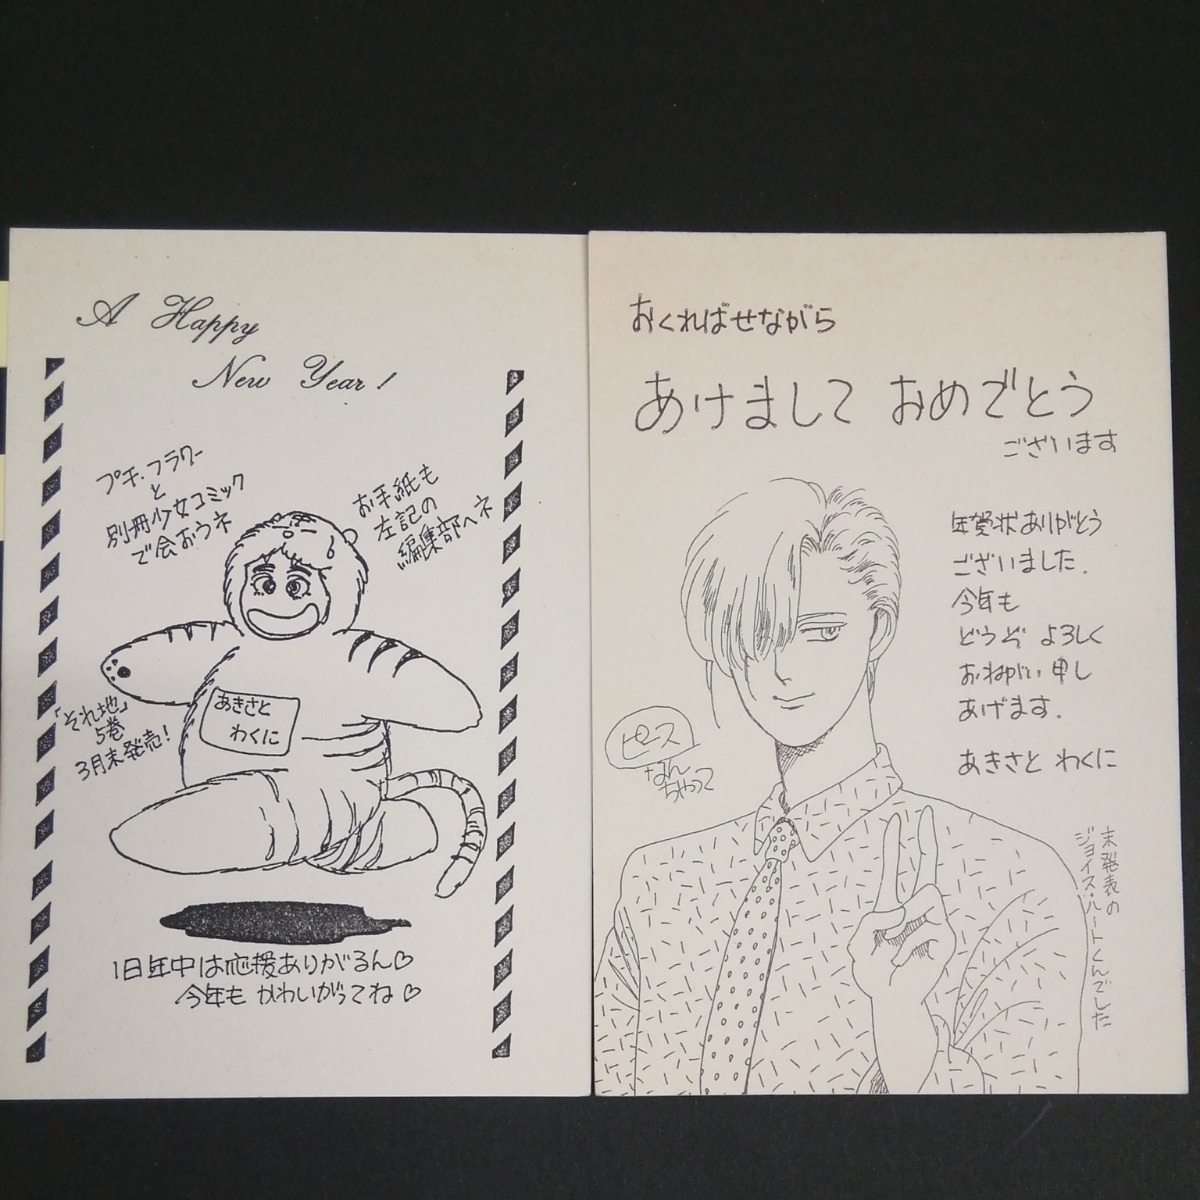 A Happy
New Year!
プチ・フラワー
と
別冊少女コミック
で会おうネ
お手紙も
左記の
編集部へネ
あきさと
わくに
「それ地」
5巻
3月末発売!
旧年中は応援ありがるん♡
今年も かわいがってね♡
おくればせながら
あけまして おめでとう
ございます
年賀状ありがとう
ございました.
今年も
どうぞ よろしく
おねがい 申し
あげます.
あきさと わくに
ピース
なん
ちゃって
未発表の
ジョイス・ルートくんでした